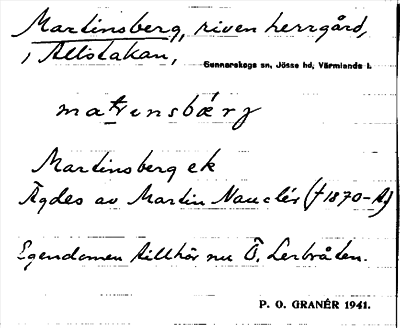 Martinsberg, riven herrgård,
i Allstakan,
Gunnarskogs sn, Jösse hd, Värmlands l.
martinsbærj
Martinsberg ek
Ägdes av Martin Nauclér († 1870-t.)
Egendomen tillhör nu Ö. Lerbråten.
P. O. GRANÉR 1941.